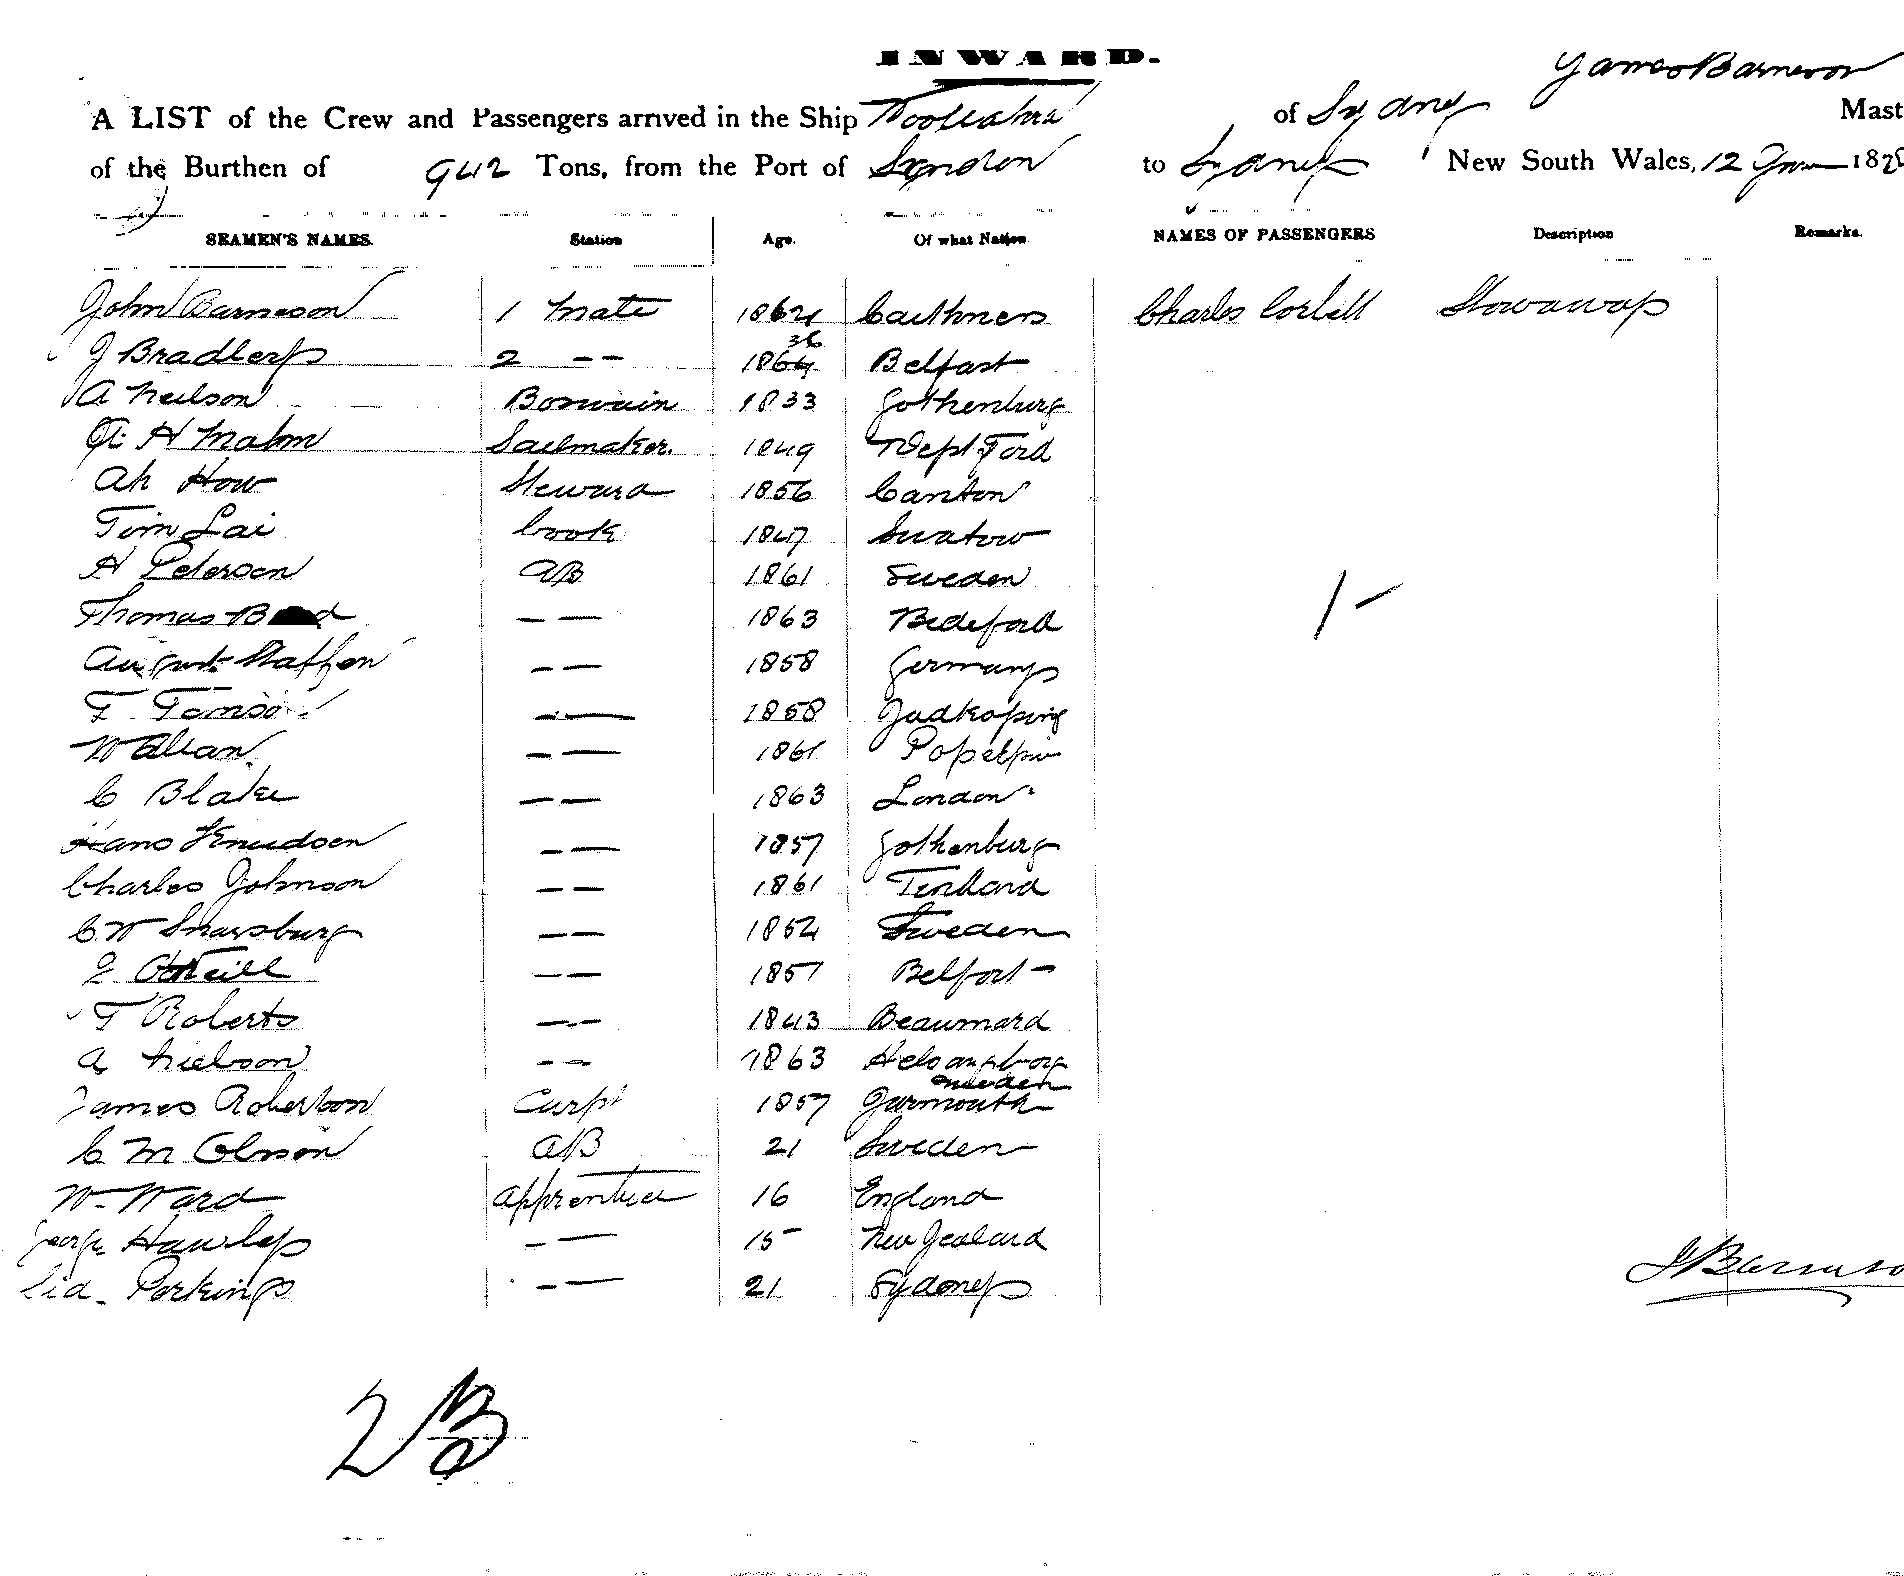 INWARD.
James Barneson
A LIST of the Crew and Passengers arrived in the Ship Woollahra of Sydney Mast
of the Burthen of 942 Tons, from the Port of London to Sydney New South Wales, 12 187
SEAMEN'S NAMES. Station Age. Of what Nation NAMES OF PASSENGERS Description Remarks.
John Barneson 1 Mate 1862 Caithness Charles Corbett Stowaway
36
J Bradley 2 -- 1864 Belfast
A Neilson Boswain 1833 Gothenburg
H Malm Sailmaker. 1849 Deptford
Ah How Steward 1856 Canton
Tim Lai Cook 1847 Swatow
H Peterson AB 1861 Sweden
Thomas -- 1863 Bedeford
August Staffen -- 1858 Germany
F -- 1858 Judkoping
W Allan -- 1861
C Blake -- 1863 London
Hans Knudsen -- 1857 Gothenburg
Charles Johnson -- 1861
C W -- 1854 Sweden
E O'Neill -- 1857 Belfast
T Roberts -- 1843
A Nielson -- 1863 Helsangborg
Sweden
James Robertson Carpt 1857 Yarmouth
C M Olsson AB 21 Sweden
W. Ward Apprentice 16 England
George Hawley -- 15 New Zealand
Sid. Perkins -- 21 Sydney
1 -
J Barneso
23